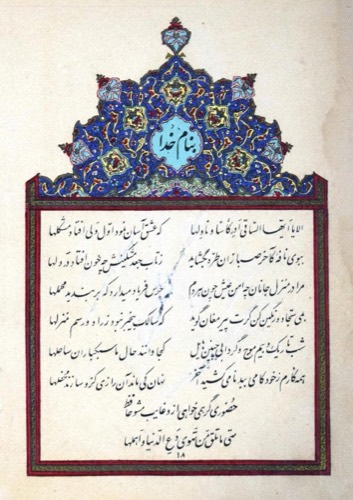 بنام خدا
الا یا ایها الساقی ادر کأسا و ناولها که عشق آسان نمود اول ولی افتاد مشکلها
ببوی نافه کاخر صبا زان طره بگشاید ز تاب جعد مشکینش چه خون افتاد در دلها
مرا در منزل جانان چه امن عیش چون هر دم جرس فریاد میدارد که بر بندید محملها
بمی سجاده رنگین کن گرت پیر مغان گوید که سالک بیخبر نبود ز راه و رسم منزلها
شب تاریک و بیم موج و گردابی چنین هایل کجا دانند حال ما سبکباران ساحلها
همه کارم ز خود کامی ببدنامی کشید آخر نهان کی ماند آن رازی کزو سازند محفلها
حضوری گر همی خواهی ازو غایب مشو حافظ
متی ما تلق من تهوی دع الدنیا و اهملها
۱۸